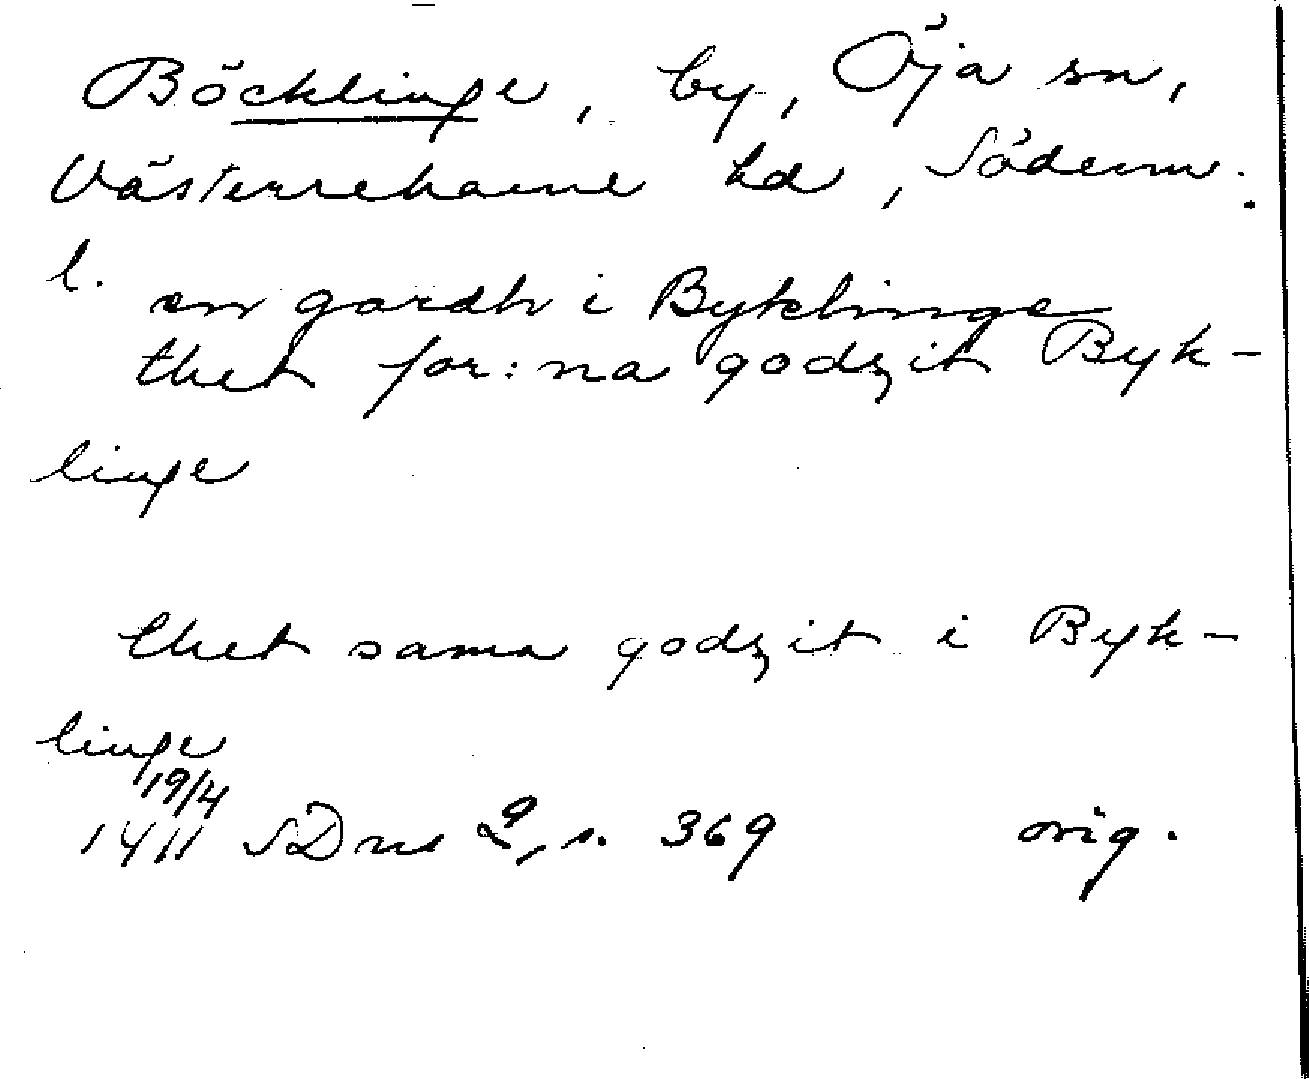 Böcklinge, by, Öja sn,
Västerrekarne hd, Söderm.
l.
en gardh i Byklinge
thet for:na godzit Byk-
linge
thet sama godzit i Byk-
linge
19/4
1411 SDns 2, s. 369 orig.